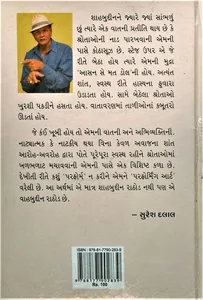 શાહબુદ્દીનને જ્યારે જ્યારે સાંભળું
છું ત્યારે એક વાતની પ્રતીતિ થાય છે કે
શ્રોતાઓની નાડ પારખવાની એમની
પાસે કોઠાસૂઝ છે. સ્ટેજ ઉપર એ જે
રીતે બેઠા હોય ત્યારે એમની મુદ્રા
'આસન સે મત ડોલ'ની હોય. અત્યંત
શાંત, સ્વસ્થ રીતે હાસ્યના ફુવારા
ઉડાડતા હોય. સામે બેઠેલા શ્રોતાઓ
ખુરશી પકડીને હસતા હોય. વાતાવરણમાં તાળીઓનાં કબૂતરો
ઊડતાં હોય.
જે કંઈ ખૂબી હોય તો એમની વાતની અને અભિવ્યક્તિની.
નાટ્યાત્મક કે નાટકીય થયા વિના કેવળ અવાજના શાંત
આરોહ-અવરોહ દ્વારા પોતે પૂરેપૂરા સ્વસ્થ રહીને શ્રોતાઓમાં
ખળભળાટ મચાવવાની એમની પાસે એક વિશિષ્ટ કળા છે.
દેખીતી રીતે કશું 'પરફોર્મ' ન કરીને એમને 'પરફોર્મિંગ આર્ટ'
વરેલી છે. આ અર્થમાં એ માત્ર શાહબુદ્દીન રાઠોડ નથી પણ એ
વાહબુદ્દીન રાઠોડ છે.
– સુરેશ દલાલ